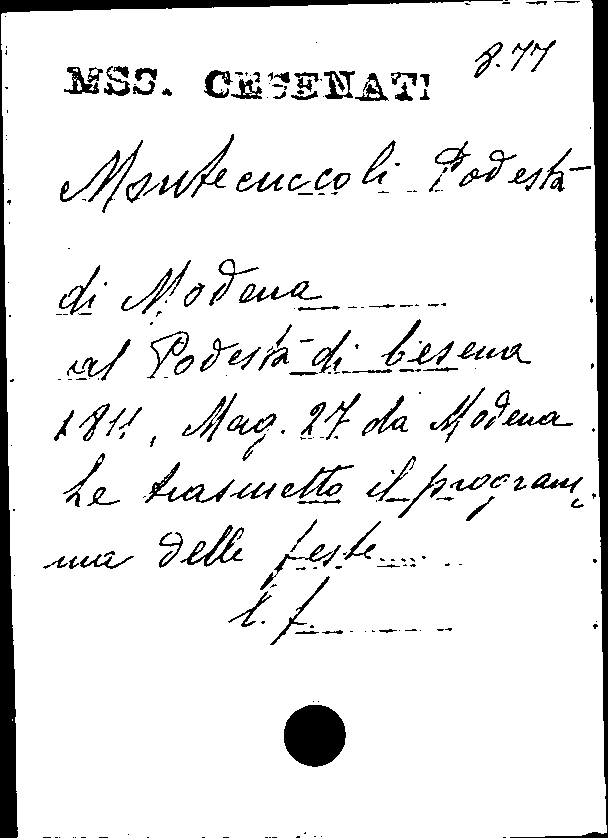 MSS. CESENATI 8.77
Montecuccoli Podestà
di Modena
al Podestà di Cesena
1811, Mag. 27 da Modena
Le trasmetto il program
ma delle feste....
l. f.